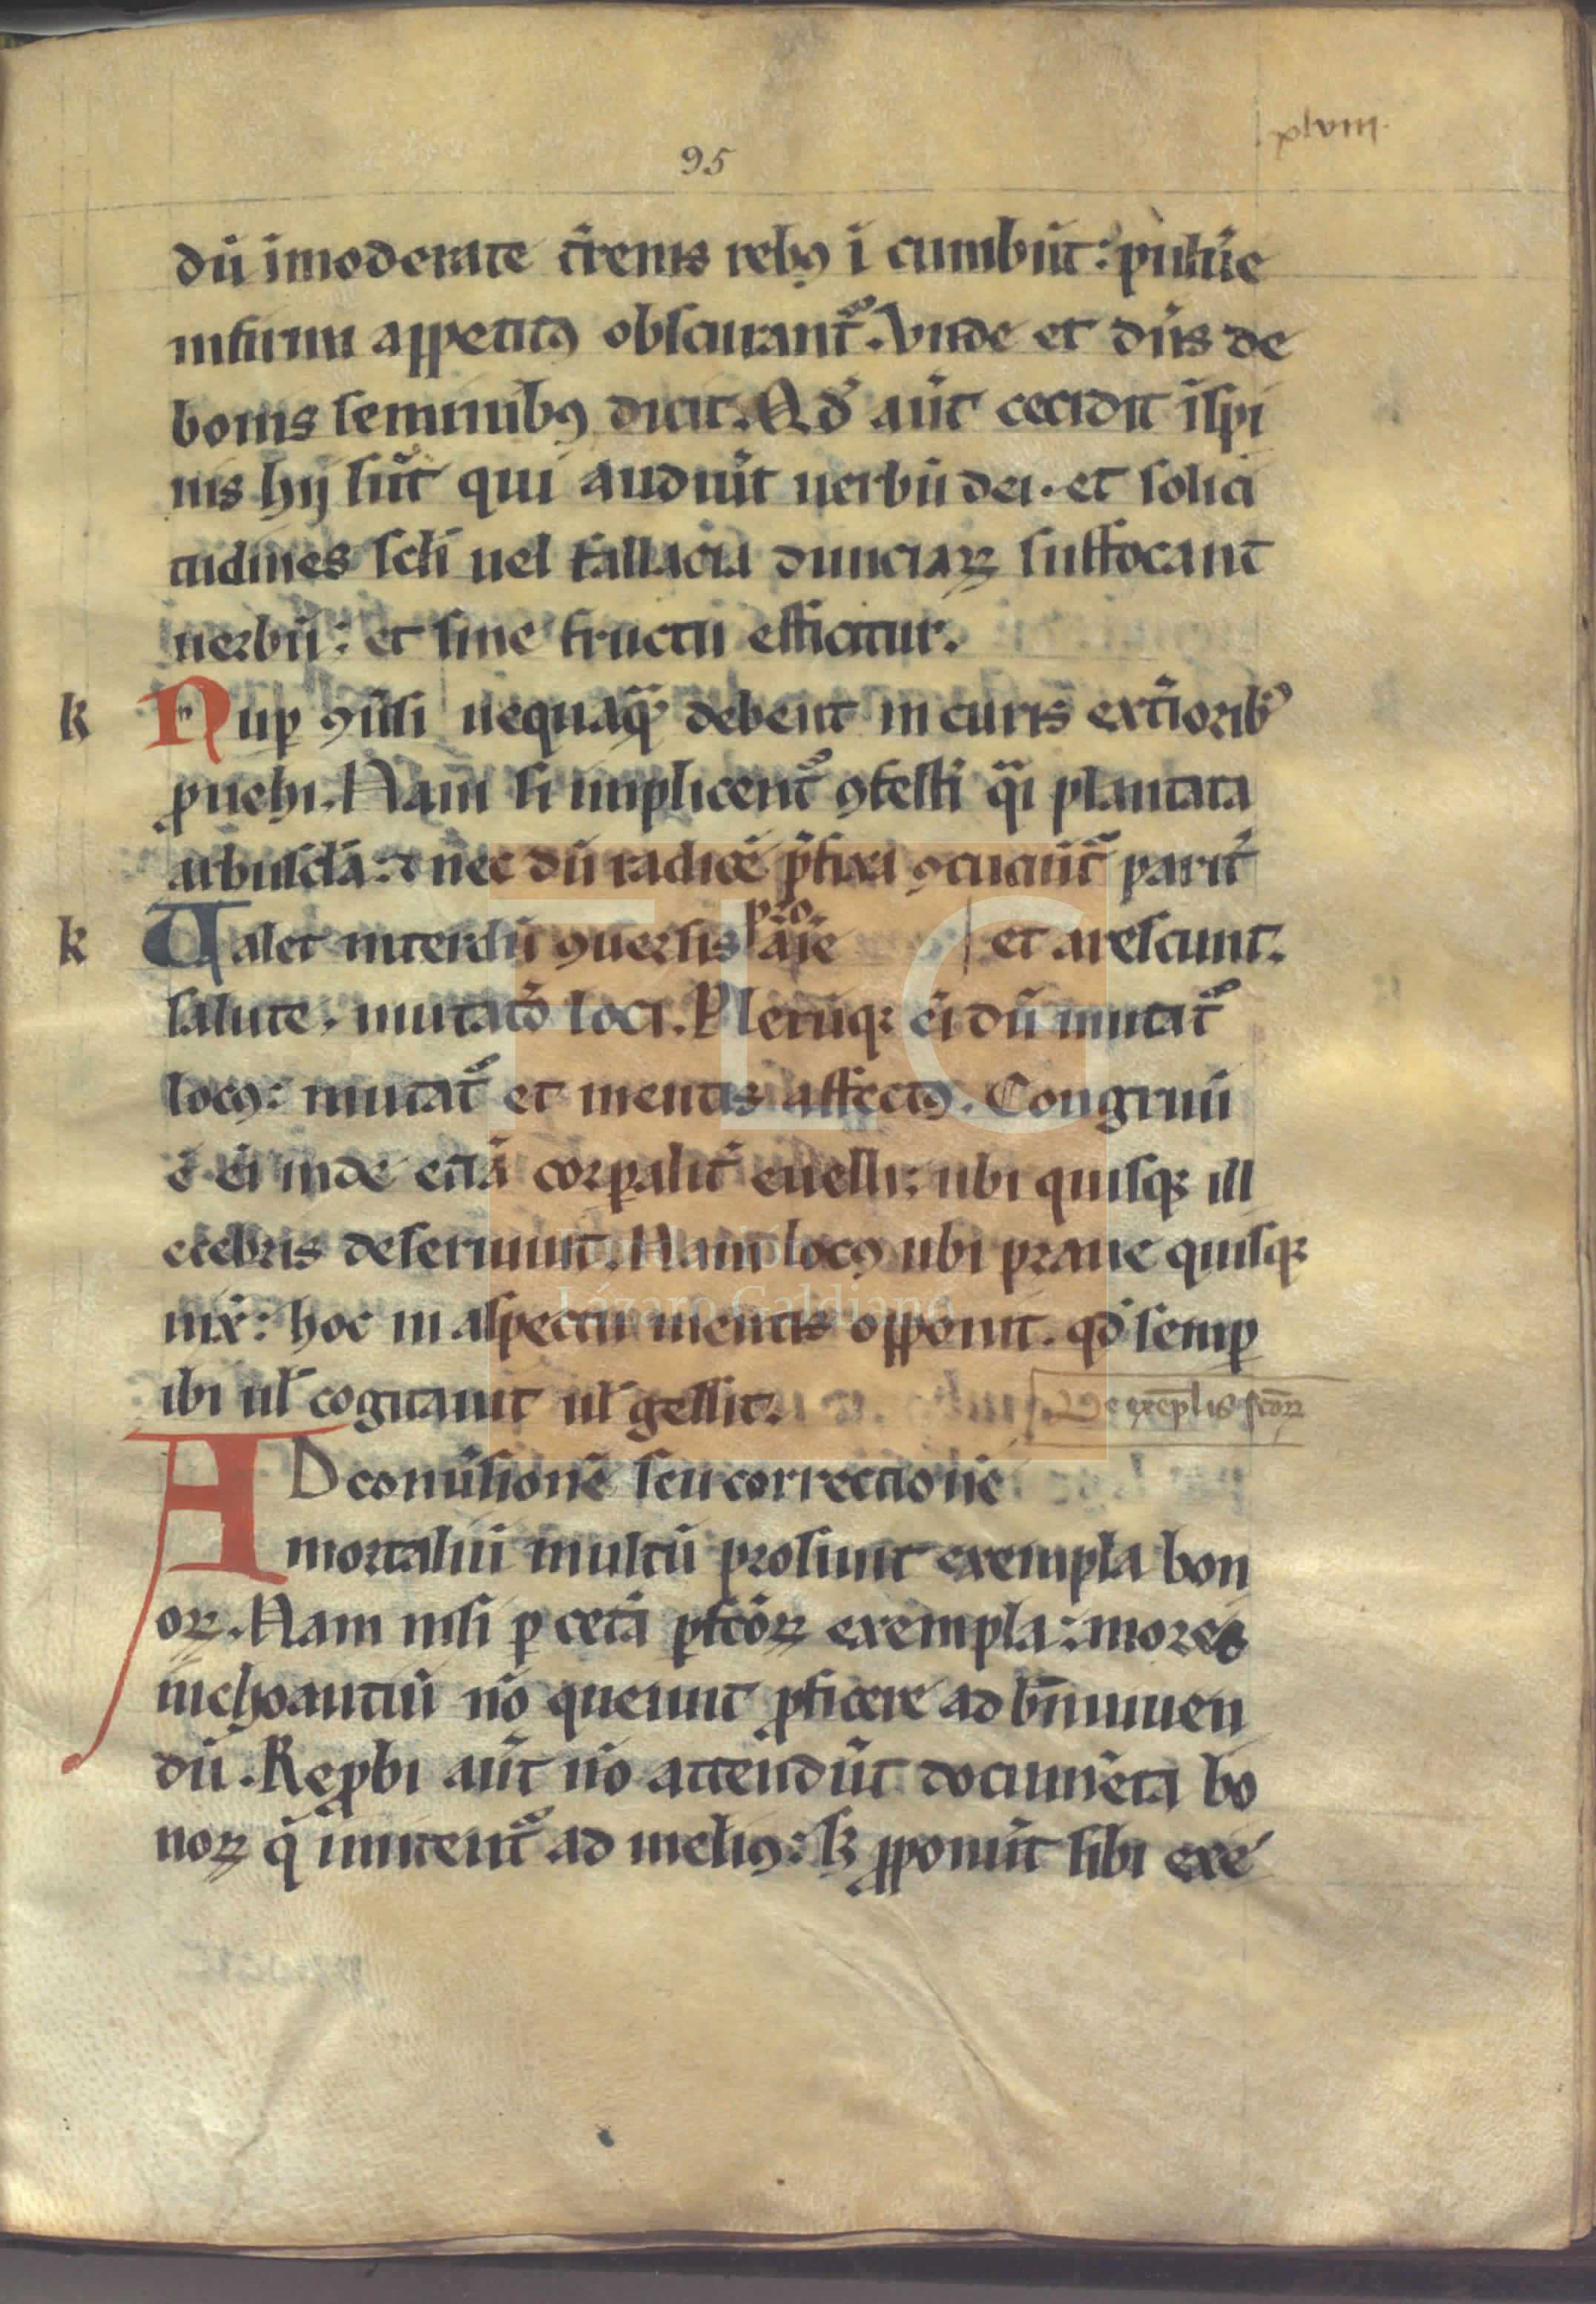 xlviii.
95
dū īmoderate t̄renis rebꝰ ī cumbūt: puluē
infirmi appetitꝰ obscurant᷑. Vnde et dn̄s de
bonis seminibꝰ dicit. Qd̓ aūt cecidit īspi
nis hij sūt qui audiūt uerbū dei. et solici
tudines scl̄i uel fallacia diuiciaꝝ suffocant
uerbū: et sine fructu efficitur.
k Nuꝑ ꝯūsi nequaq̄ debent in curis ext̓ioribꝰ
ꝓuehi. Nam si implicent᷑ ꝯfesti q̄i plantata
arbuscl̄a: ⁊ nec dū radicē p̄fixa ꝯcuciūt᷑ parit̓
k Ualet interdū ꝯuersis pro aīe et arescunt.
salute. mutatō loci. Plerūqꝫ ei dū mutat᷑
locꝰ: mutat᷑ et mentis affectꝰ. Congruū
ē ei inde etiā corꝑalit̓ euelli: ubi quisqꝫ ill
ecebris deseruiuit. Nam locꝰ ubi praue quisqꝫ
uix̓: hoc in aspectu mentis opponit. qd̓ semꝑ
ibi ul̓ cogitauit ul̓ gessit.
De exēplis sc̄oꝝ
AD conūsionē seu correctionē
mortaliū multū prosunt exempla bon
oꝝ. Nam nisi ꝑ cetā ꝑfcōꝝ exempla: mores
inchoantiū nō queunt ꝓficere ad bn̄ uiuen
dū. Reꝓbi aūt nō attendūt documēta bo
noꝝ q̄ imitent᷑ ad meliꝰ: sꝫ ꝓponūt sibi exē
Fundación
Lázaro Galdiano